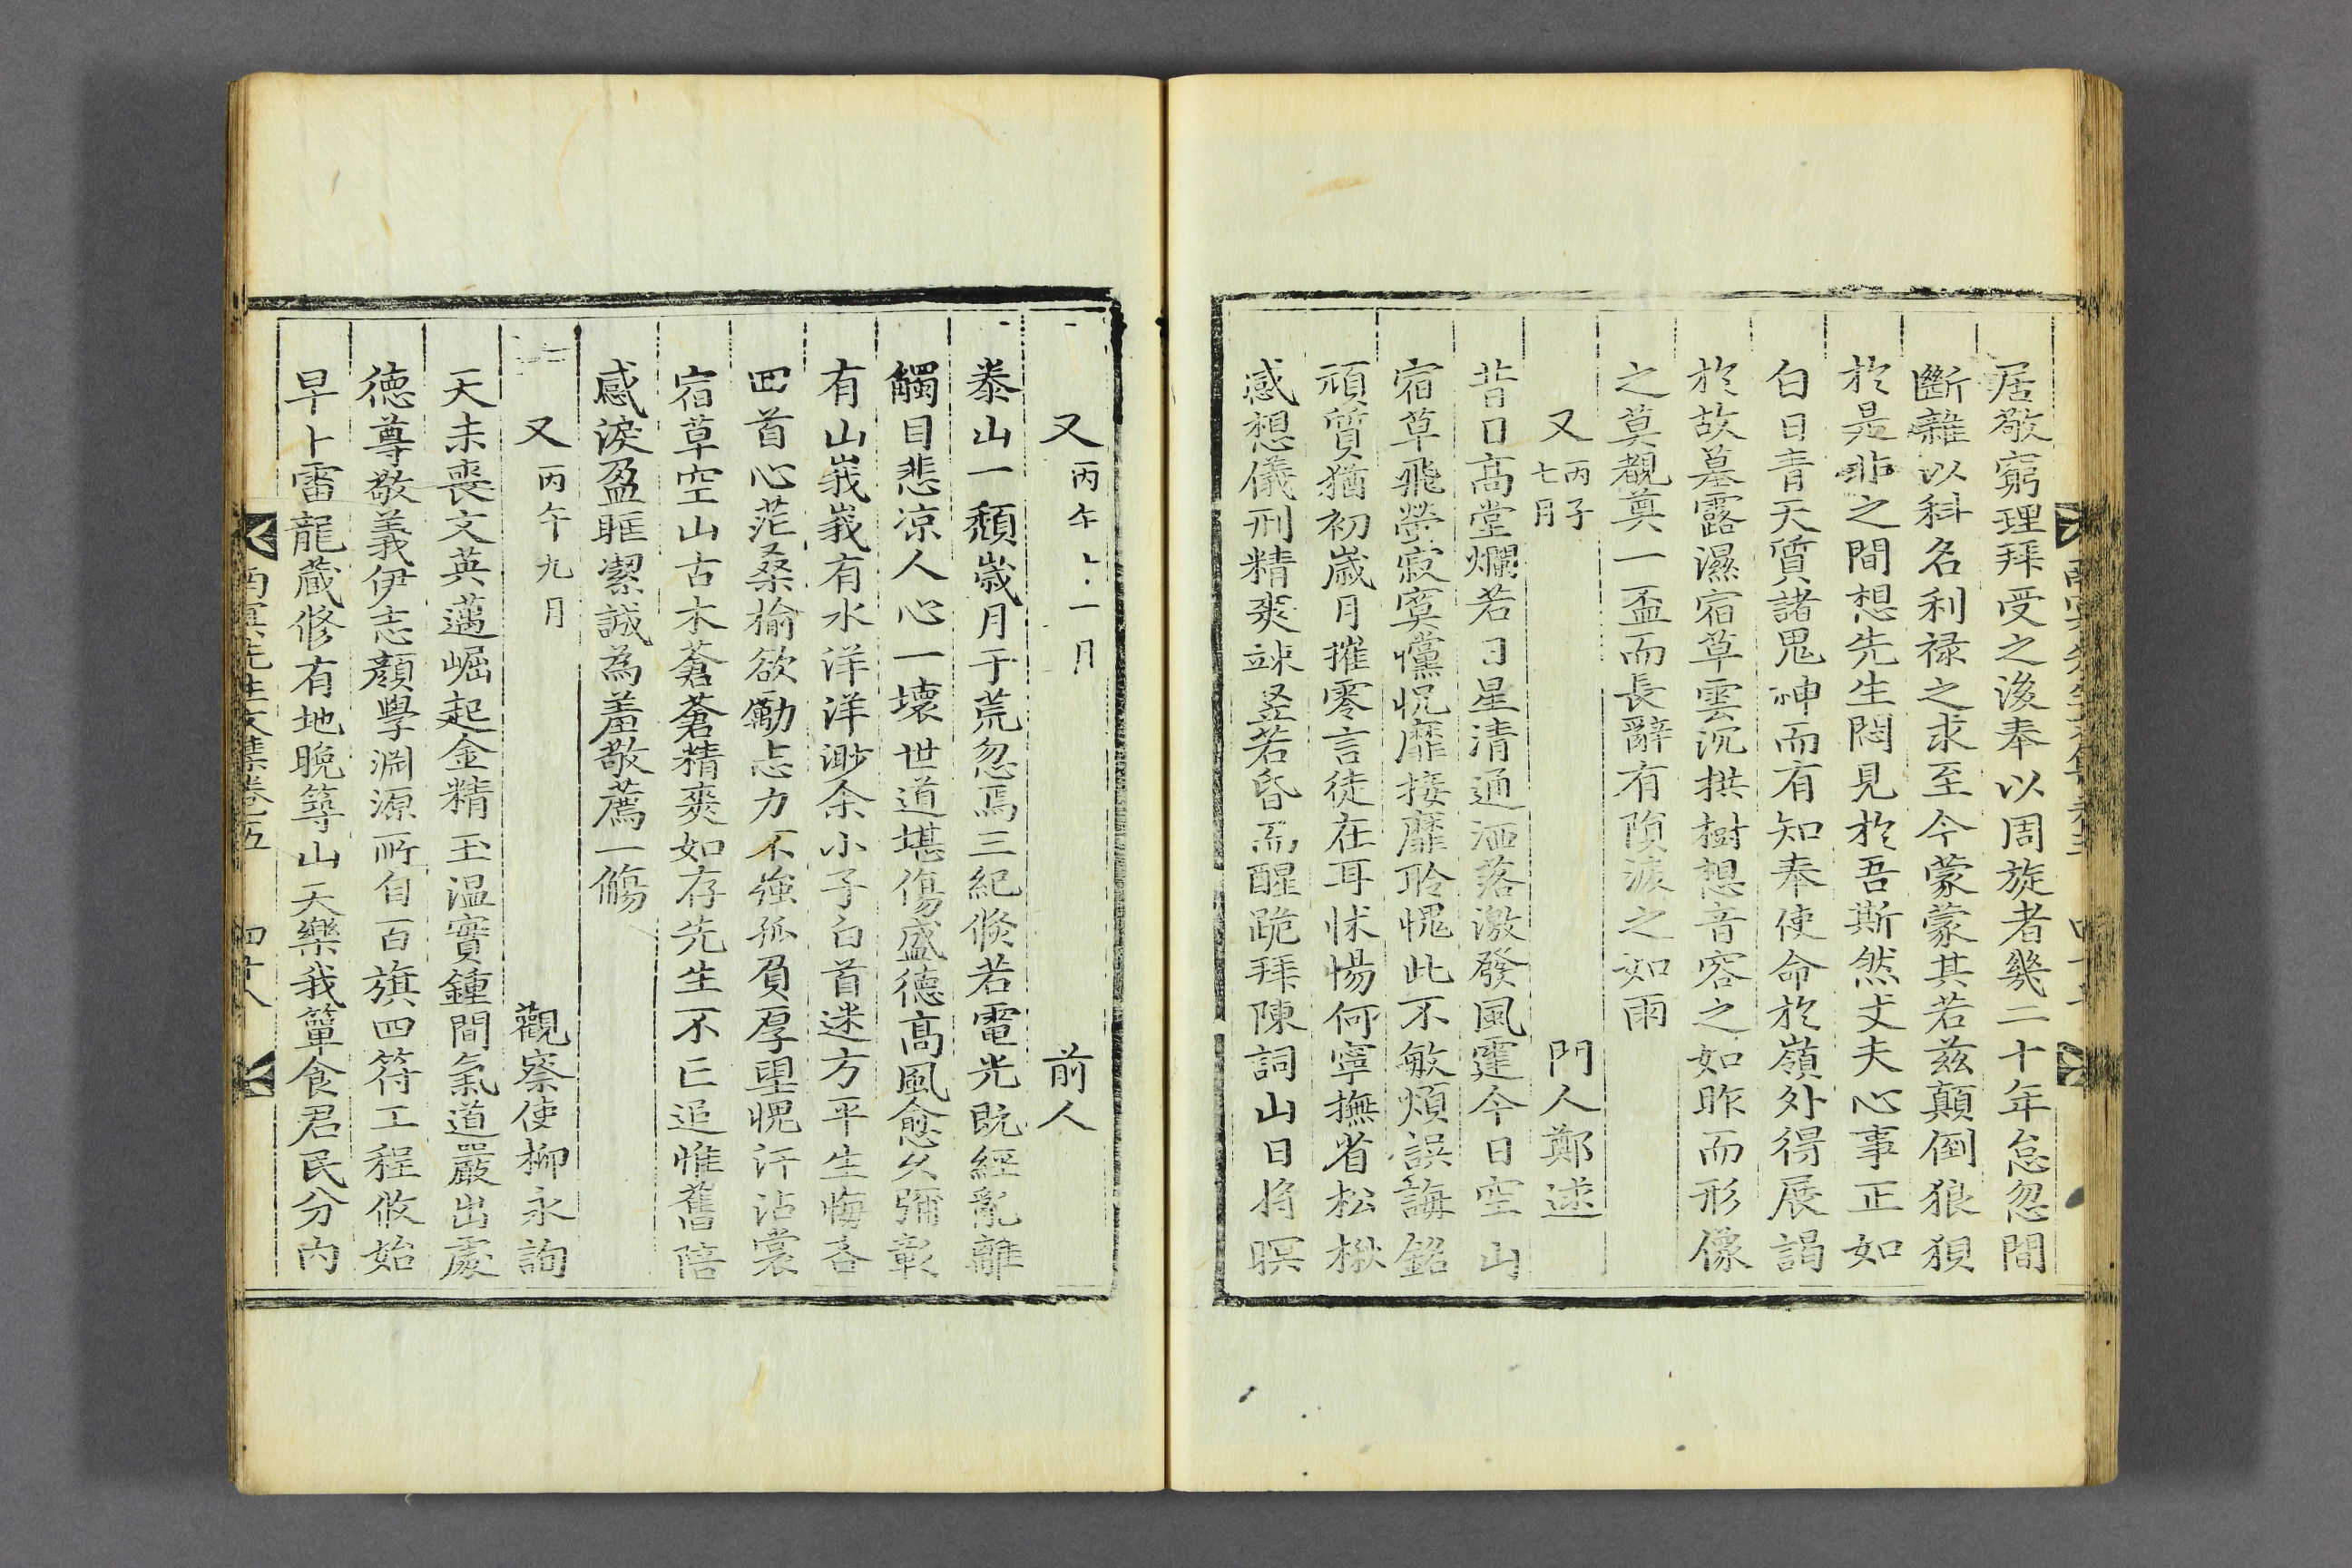 居敬窮理拜受之後奉以周旋者幾二十年怠忽間
斷雜以科名利祿之求至今蒙蒙其若玆顛倒狼狽
於是非之間想先生悶見於吾斯然丈夫心事正如
白日青天質諸鬼神而有知奉使命於嶺外得展謁
於故墓露濕宿草雲沉拱樹想音容之如昨而形像
之莫覩奠一盃而長辭有隕淚之如雨
又 丙子七月 門人鄭逑
昔日高堂爛若日星清通洒落激發風霆今日空山
宿草飛螢寂寞儻怳靡接靡聆愧此不敏煩誤誨銘
頑質猶初歲月摧零言徒在耳怵惕何寧撫省松楸
感想儀刑精爽竦竖若昏而醒跪拜陳詞山日將暝
又 丙午 一月 前人
泰山一頹歲月于荒忽焉三紀倏若電光旣經亂離
觸目悲凉人心一壞世道堪傷盛德高風愈久彌彰
有山峩峩有水洋洋渺余小子白首迷方平生悔吝
回首心茫桑楡欲勵志力不強孤負厚望愧汗沾裳
宿草空山古木蒼蒼精爽如存先生不亡追惟舊陪
感淚盈眶潔誠為羞敬薦一觴
又 丙午九月 觀察使柳永詢
天未喪文英邁崛起金精玉温實鍾間氣道嚴出處
德尊敬義伊志顏學淵源所自百旗四符工程攸始
早卜雷龍藏修有地晩築山天樂我簞食君民分內
南冥先生文集卷之五 四十八